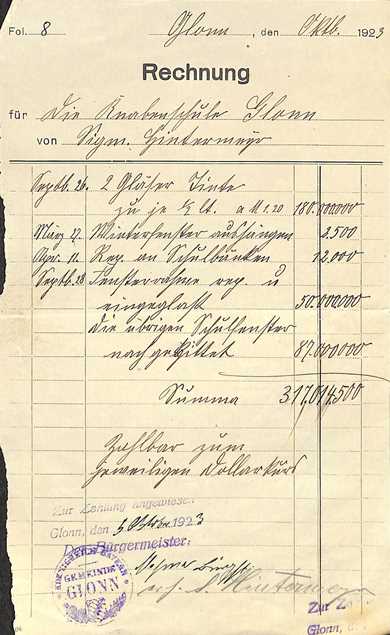 Fol. 8 Glonn, den Oktb. 1923
Rechnung
für die Knabenschule Glonn
von Sigm. Hintermeyr
Septb. 26. 2 Gläser Tinte
zu je ½ lt. a M 1.20 180.000.000
März 27. Winterfenster aushängen 2.500
Apr. 11. Rep. an Schulbänken 12.000
Septb. 28 Fensterrahme rep. u
eingeglast 50.000.000
die übrigen Schulfenster
nachgekittet 87.000.000
Summa 317.014.500
Zahlbar zum
jeweiligen Dollarkurs
Zur Zahlung angewiesen
Glonn, den 1923
Der Bürgermeister:
GEMEINDE
GLONN
Zur Za
Glonn, d